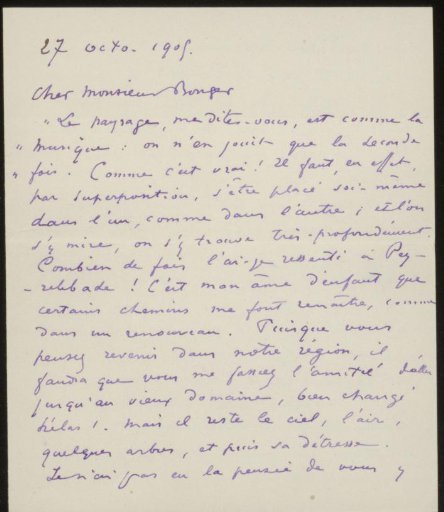 27 octo. 1905.
Cher Monsieur Bonger
"Le paysage, me dites-vous, est comme la
" musique : on n'en jouit que la seconde
" fois. Comme c'est vrai ! Il faut, en effet,
par superposition, s'être placé soi-même
dans l'un, comme dans l'autre ; et l'on
s'y mire, on s'y trouve très-profondément.
Combien de fois l'ai-je ressenti à Pey-
-relebade ! C'est mon âme d'enfant que
certains chemins me font renaître, comme
dans un renouveau. Puisque vous
pensez revenir dans notre région, il
faudra que vous me fassiez l'amitié d'aller
jusqu'au vieux domaine, bien changé
hélas ! Mais il reste le ciel, l'air,
quelques arbres, et puis sa détresse.
Je n'ai pas eu la pensée de vous y